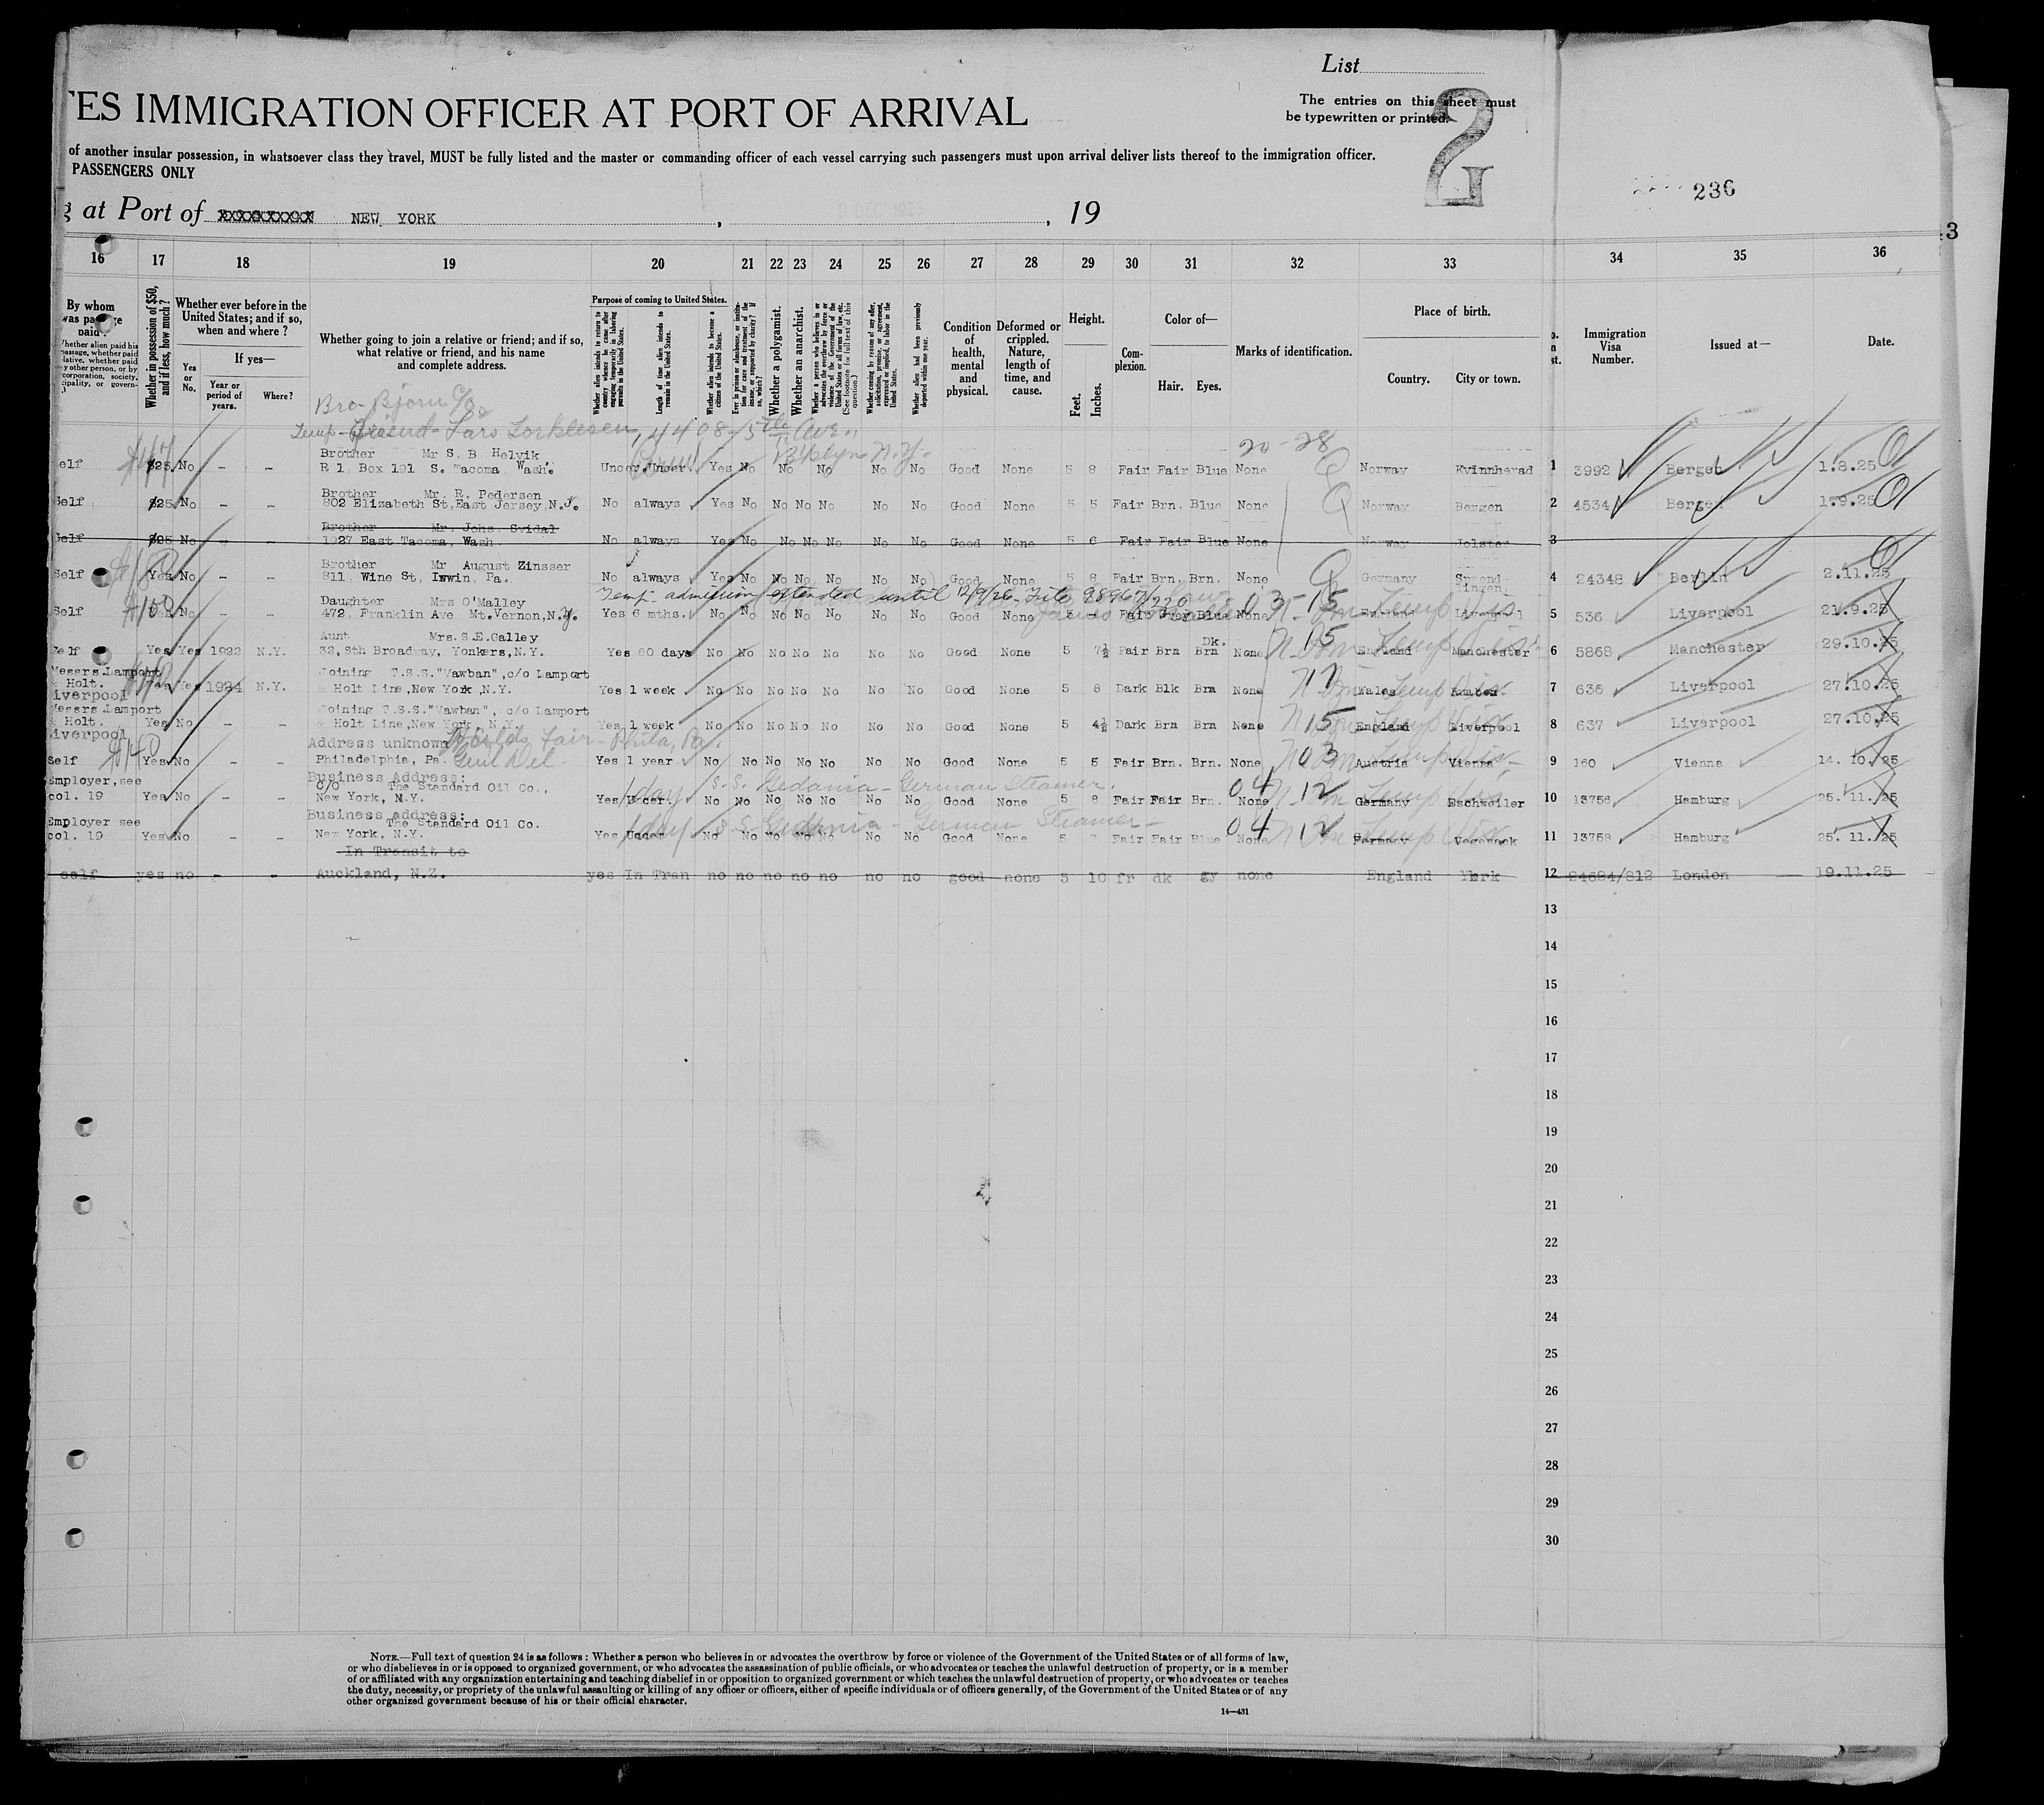 List
TES IMMIGRATION OFFICER AT PORT OF ARRIVAL
The entries on this sheet must
be typewritten or printed.
2
of another insular possession, in whatsoever class they travel, MUST be fully listed and the master or commanding officer of each vessel carrying such passengers must upon arrival deliver lists thereof to the immigration officer.
PASSENGERS ONLY
236
g at Port of XXXXXXXXX NEW YORK , , 19
3
16 17 18 19 20 21 22 23 24 25 26 27 28 29 30 31 32 33 34 35 36
By whom was passage paid?
Whether in possession of $50, and if less, how much?
Whether ever before in the United States; and if so, when and where?
Yes or No.
If yes—
Year or period of years.
Where?
Whether going to join a relative or friend; and if so, what relative or friend, and his name and complete address.
Purpose of coming to United States.
Whether alien intends to return to country whence he came after engaging temporarily in laboring pursuits in the United States.
Length of time alien intends to remain in the United States.
Whether alien intends to become a citizen of the United States.
Whether a polygamist.
Whether an anarchist.
Condition of health, mental and physical.
Deformed or crippled. Nature, length of time, and cause.
Height.
Feet. Inches.
Complexion.
Color of—
Hair. Eyes.
Marks of identification.
Place of birth.
Country. City or town.
Immigration Visa Number.
Issued at—
Date.
Bro- Bjorn c/o
4408-5th Ave.
B'klyn N.Y.
20-28
Brother Mr S. B Helvik
elf $25 No - - R 1, Box 191 S. Tacoma Wash. Yes No No No No No Good None 5 8 Fair Fair Blue None Norway Kvinnherad 1 3992 Bergen 1.8.25
Brother Mr. R. Pedersen
Self $25 No - - 802 Elizabeth St, East Jersey, N.J. No always Yes No No No No No No Good None 5 5 Fair Brn. Blue None Norway Bergen 2 4534 Bergen 1.9.25
Brother Mr. Johs. Svidal
Self $25 No - - 1927 East Tacoma, Wash No always Yes No No No No No No Good None 5 6 Fair Fair Blue None Norway Jolster 3
Brother Mr August Zinsser
Self Yes No - - 811, Wine St, Irwin, Pa. No always Yes No No No No No No Good None 5 8 Fair Brn. Brn. None Germany 4 24348 Berlin 2.11.25
Temp. admission extended until 12/9/26- File 98967/220
Daughter Mrs O'Malley
Self No - - 472, Franklin Ave Mt. Vernon, N.Y. Yes 6 mths. No No No No No No No Good None Fair Grey Blue None 03-15 England Liverpool 5 536 Liverpool 21.9.25
Aunt Mrs. S.E. Galley
Self Yes Yes 1922 N.Y. 32, Sth Broadway, Yonkers, N.Y. Yes 60 days No No No No No No No Good None 5 7½ Fair Brn Dk. Brn None 05 England Manchester 6 5868 Manchester 29.10.25
Messrs. Lamport
& Holt.
Liverpool
Joining T.S.S. "Vawban", c/o Lamport
Yes Yes 1924 N.Y. & Holt Line, New York, N.Y. Yes 1 week No No No No No No No Good None 5 8 Dark Blk Brn None Wales 7 636 Liverpool 27.10.25
Messrs. Lamport
& Holt.
Liverpool
Joining T.S.S. "Vawban", c/o Lamport
Yes No - - & Holt Line, New York, N.Y. Yes 1 week No No No No No No No Good None 5 4½ Dark Brn Brn None 15 England Liverpool 8 637 Liverpool 27.10.25
Address unknown Worlds Fair- Phila, Pa.
Self $140 Yes No - - Philadelphia, Pa. Genl Del. Yes 1 year No No No No No No No Good None 5 5 Fair Brn. Brn. None 03 Austria Vienna 9 160 Vienna 14. 10. 25
Employer, see
col. 19
Business Address:
c/o The Standard Oil Co.,
1 day S.S. Gedania - German Steamer.
Yes No - - New York, N.Y. Yes Under. No No No No No No No Good None 5 8 Fair Fair Brn. None 04 12 Germany Eschweiler 10 13756 Hamburg 25. 11. 25
Employer see
col. 19
Business address:
The Standard Oil Co.
1 day S.S. Gedania - German Steamer -
Yes No - - New York, N.Y. Yes Under No No No No No No No Good None 5 7 Fair Fair Blue None 04 12 Germany Vegesack 11 13758 Hamburg 25. 11. 25
In Transit to
self yes no - - Auckland, N.Z. yes In Tran no no no no no no no good none 5 10 fr dk gy none England York 12 24684/812 London 19.11.25
13
14
15
16
17
18
19
20
21
22
23
24
25
26
27
28
29
30
NOTE.—Full text of question 24 is as follows: Whether a person who believes in or advocates the overthrow by force or violence of the Government of the United States or of all forms of law,
or who disbelieves in or is opposed to organized government, or who advocates the assassination of public officials, or who advocates or teaches the unlawful destruction of property, or is a member
of or affiliated with any organization entertaining and teaching disbelief in or opposition to organized government or which teaches the unlawful destruction of property, or who advocates or teaches
the duty, necessity, or propriety of the unlawful assaulting or killing of any officer or officers, either of specific individuals or of officers generally, of the Government of the United States or of any
other organized government because of his or their official character.
14—431